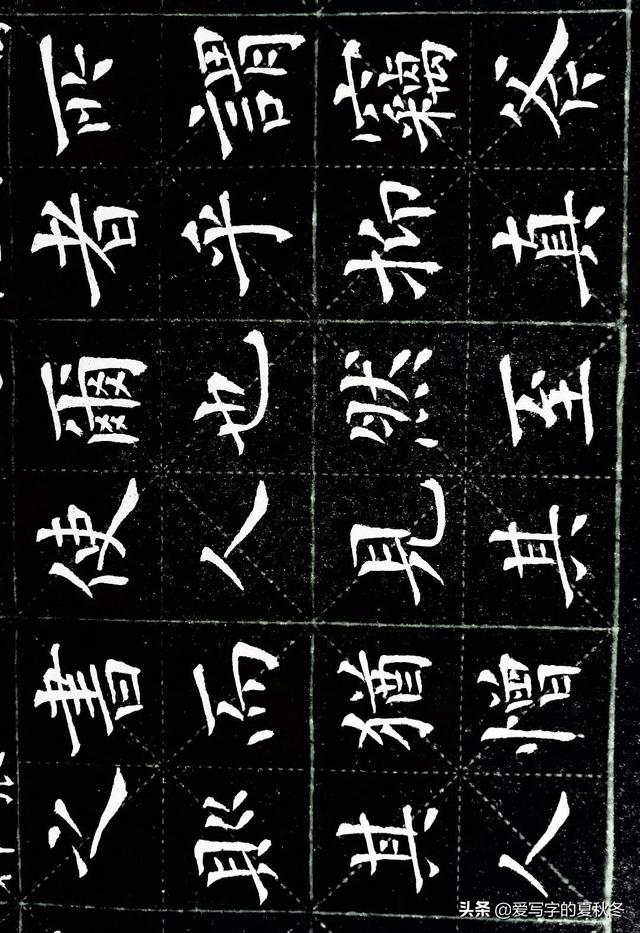 所謂竊
者乎抑真
爾也然至
使人見其
書而猶憎
之耶其人
头条 @爱写字的夏秋冬